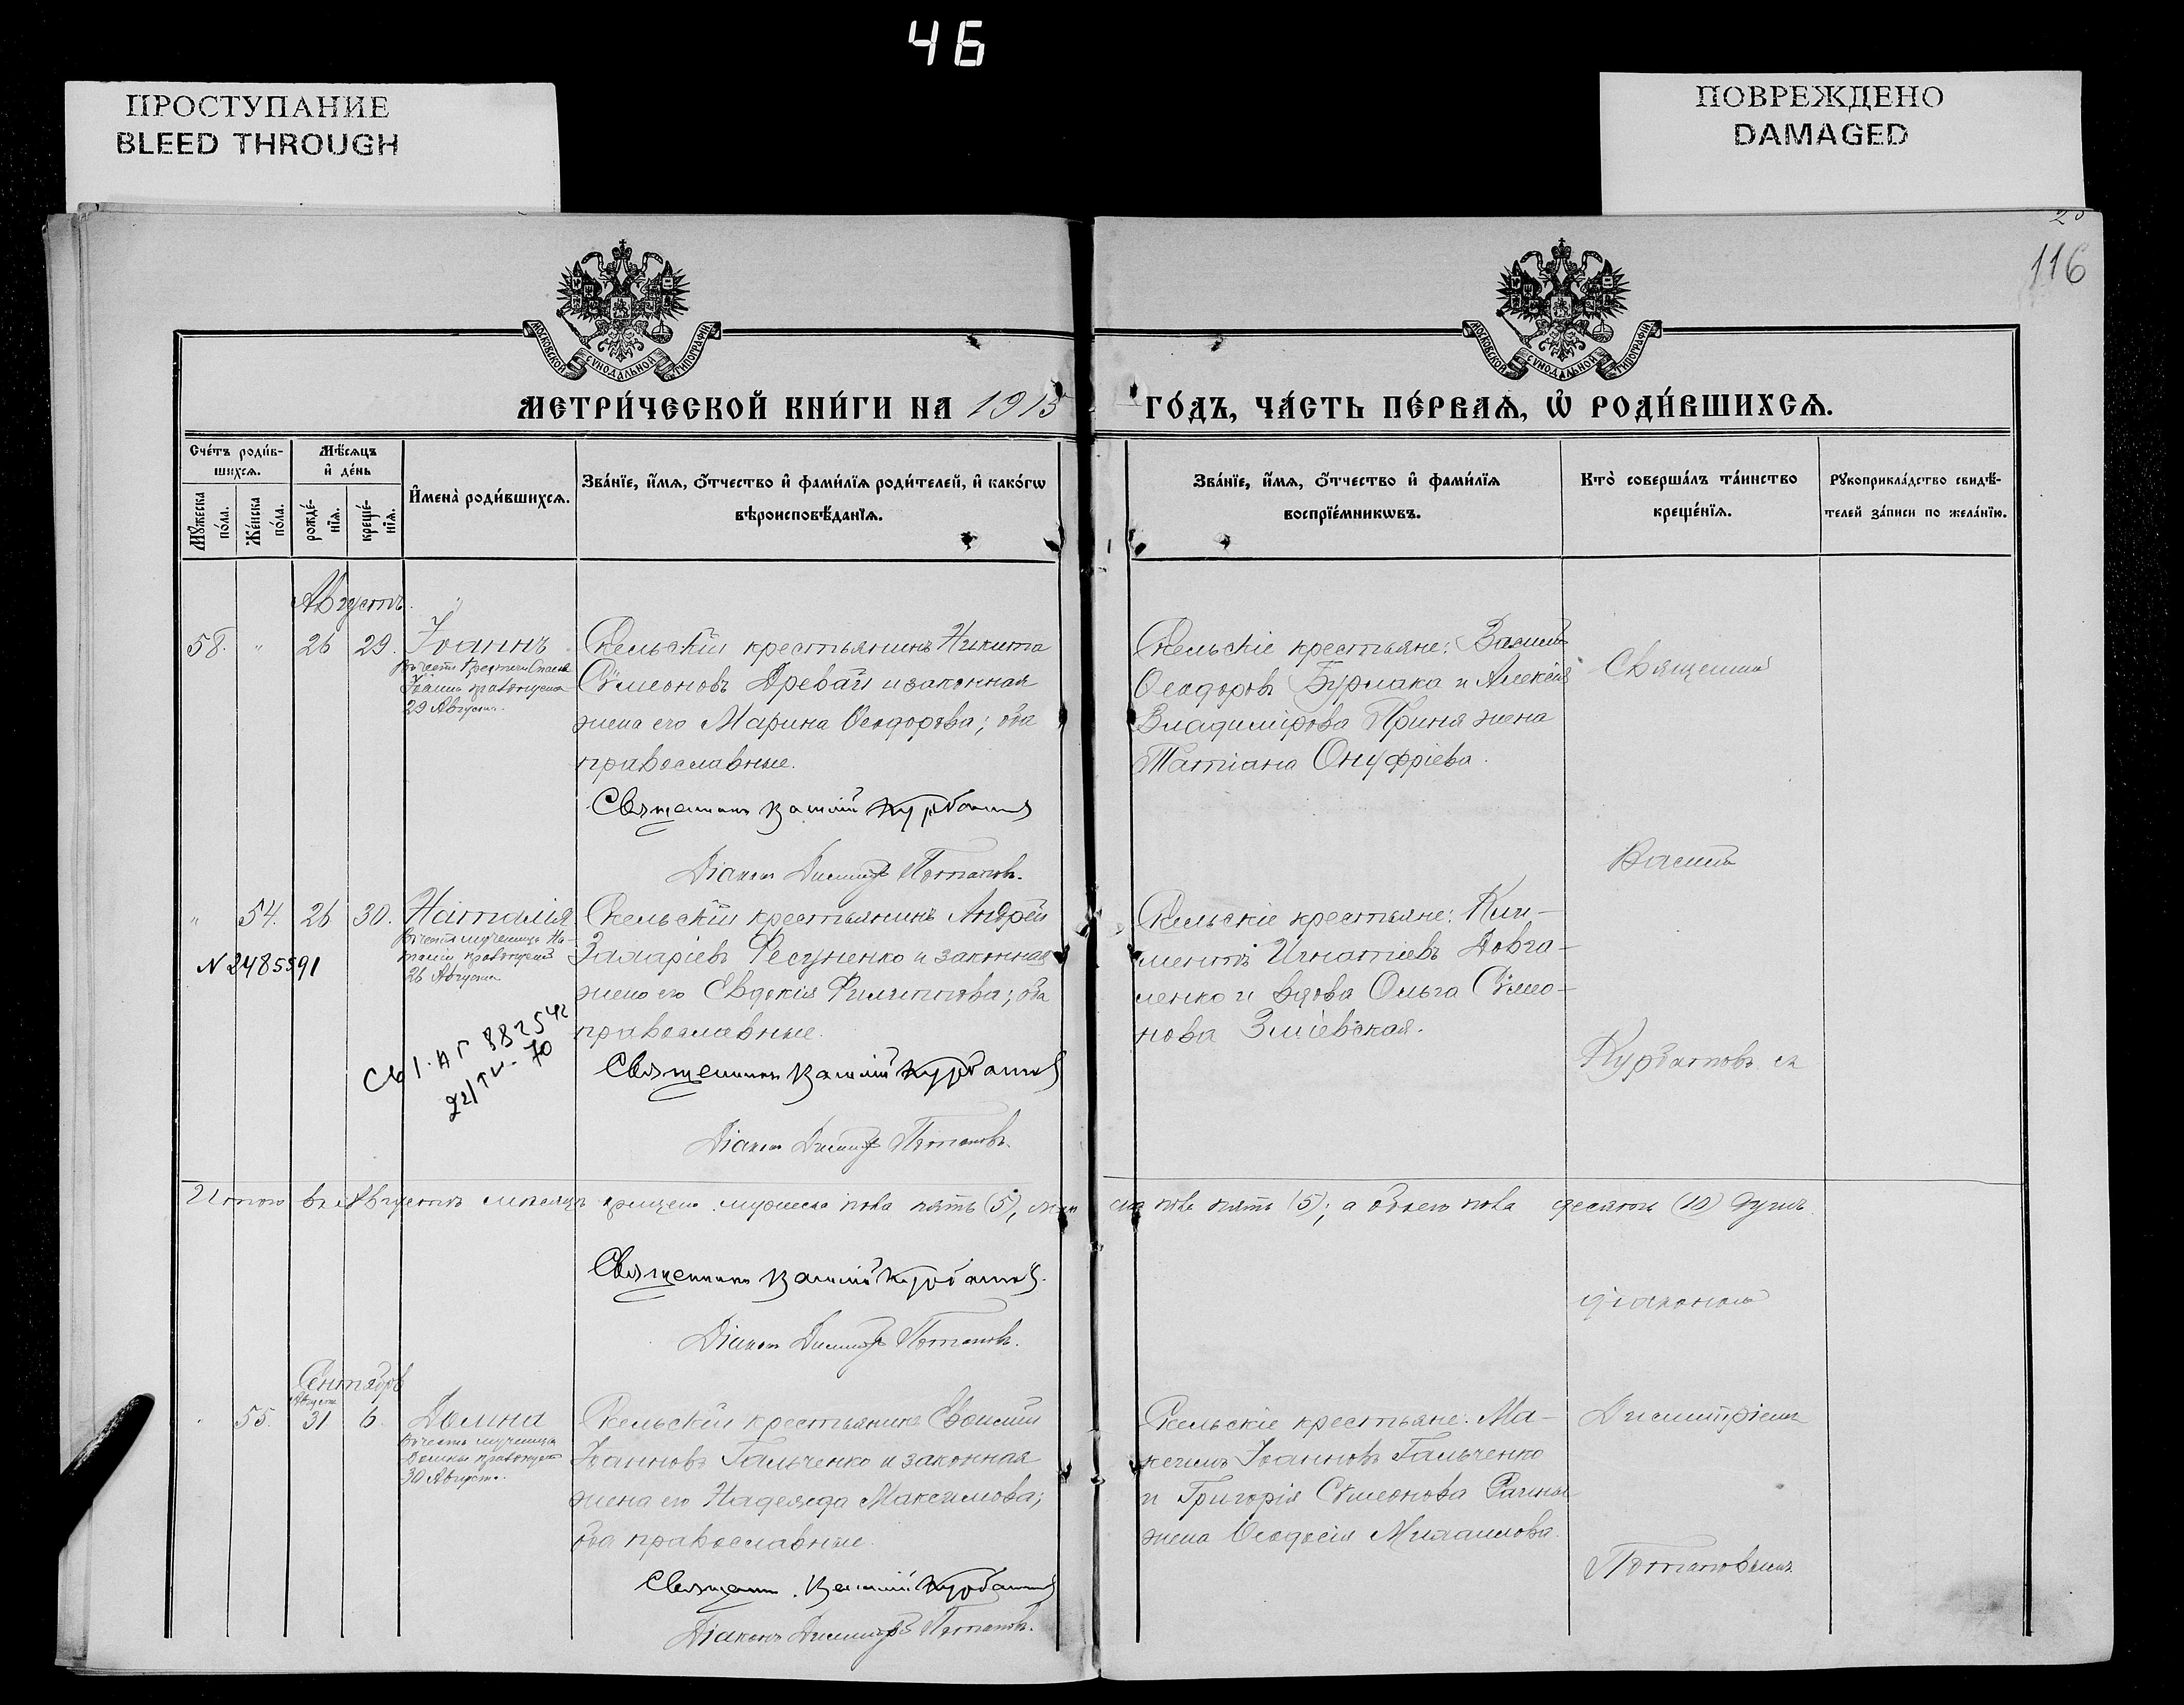 46
ПРОСТУПАНИЕ
BLEED THROUGH
ПОВРЕЖДЕНО
DAMAGED
116
МОСКОВСКОЙ СѴНОДАЛЬНОЙ ТИПОГРАФІИ
МОСКОВСКОЙ СѴНОДАЛЬНОЙ ТИПОГРАФІИ
МЕТРИ́ЧЕСКОЙ КНИ́ГИ НА 1915
ГО́ДЪ, ЧА́СТЬ ПЕ́РВАѦ, Ѡ҆ РОДИ́ВШИХСѦ.
Сче́тъ роди́в-
шихсѧ.
Мꙋ́жеска по́ла.
Же́нска по́ла.
Мѣ́сѧцъ
и҆ де́нь
рожде́-нїѧ.
креще́-нїѧ.
И҆мена̀ роди́вшихсѧ.
Зва́нїе, и҆́мѧ, ѻ҆́тчество и҆ фами́лїѧ роди́телей, и҆ како́гѡ
вѣроисповѣ́данїѧ.
Зва́нїе, и҆́мѧ, ѻ҆́тчество и҆ фами́лїѧ
воспрїе́мникѡвъ.
Кто̀ соверша́лъ та́инство
креще́нїѧ.
Рꙋкоприкла́дство свидѣ́-
телей за́писи по жела́нїю.
Августъ.
58. " 26 29. Іоаннъ
29 Августа.
Скельскій крестьянинъ Никита
Сѵмеоновъ Древаль и законная
жена его Марина Ѳеодорова; оба
православные.
Священникъ Василій Курбатовъ
Діаконъ Димитрій Потаповъ.
Скельскіе крестьяне: Василій
Ѳеодоровъ Бурлака и Алексія
Владимірова жена
Татіана Онуфріева.
Священник
Василій
" 54. 26 30. Наталія
въ честь мученицы На-
таліи празднуемой
26 Августа
N 2485591
22/IV-70
Скельскій крестьянинъ Андрей
Фесуненко и законная
жена его Евдокія Филиппова; оба
православные.
Священникъ Василій Курбатовъ
Діаконъ Димитрій Потаповъ.
Скельскіе крестьяне: Кли-
ментъ Игнатіевъ Довга-
ленко и вдова Ольга Сѵмео-
нова Зміевская.
Курбатовъ съ
Итого въ Августѣ месяцѣ крещено мужеска пола пять (5), жен
ска пола пять (5); а обоего пола десять (10) душъ.
Священникъ Василій Курбатовъ.
Діаконъ Димитрій Потаповъ.
діакономъ
Сентябрь
Августа
" 55. 31 6. Домна
въ честь мученицы
Домны празднуем
30 Августа.
Скельскій крестьянинъ
Іоанновъ Гальченко и законная
жена его Надежда Максимова;
оба православные.
Священн. Василій Курбатовъ
Діаконъ Димитрій Потаповъ.
Скельскіе крестьяне: Ма-
ксимъ Іоанновъ Гальченко
и Григорія Сѵмеонова
жена Ѳеодосія Михаилова.
Димитріемъ
Потаповымъ